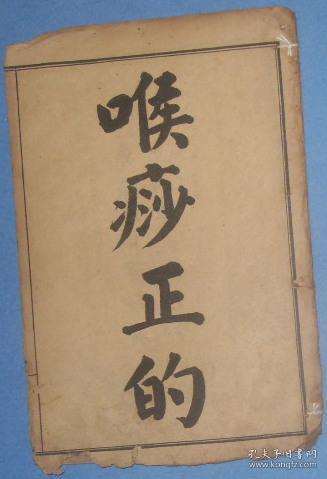 喉痧正的
孔夫子旧书网
www.kongfz.com